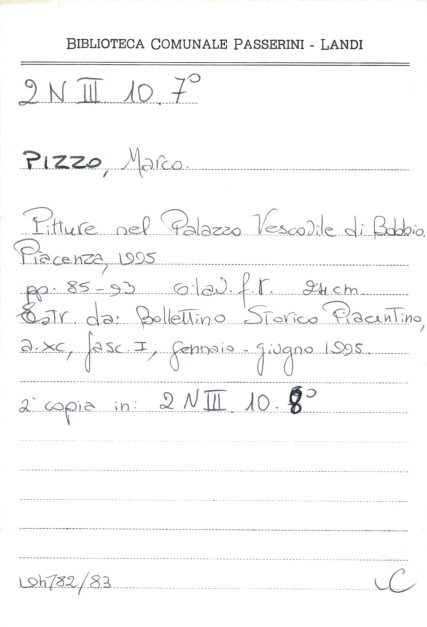 BIBLIOTECA COMUNALE PASSERINI - LANDI
2 N III 10. 7°
PIZZO, Marco.
Pitture nel Palazzo Vescovile di Bobbio.
Piacenza, 1995
pp. 85-93 tav. f.t. 24 cm.
Estr. da: Bollettino Storico Piacentino,
a. XC, fasc. I, gennaio - giugno 1995.
2ª copia in: 2 N III 10. 8°
82/83